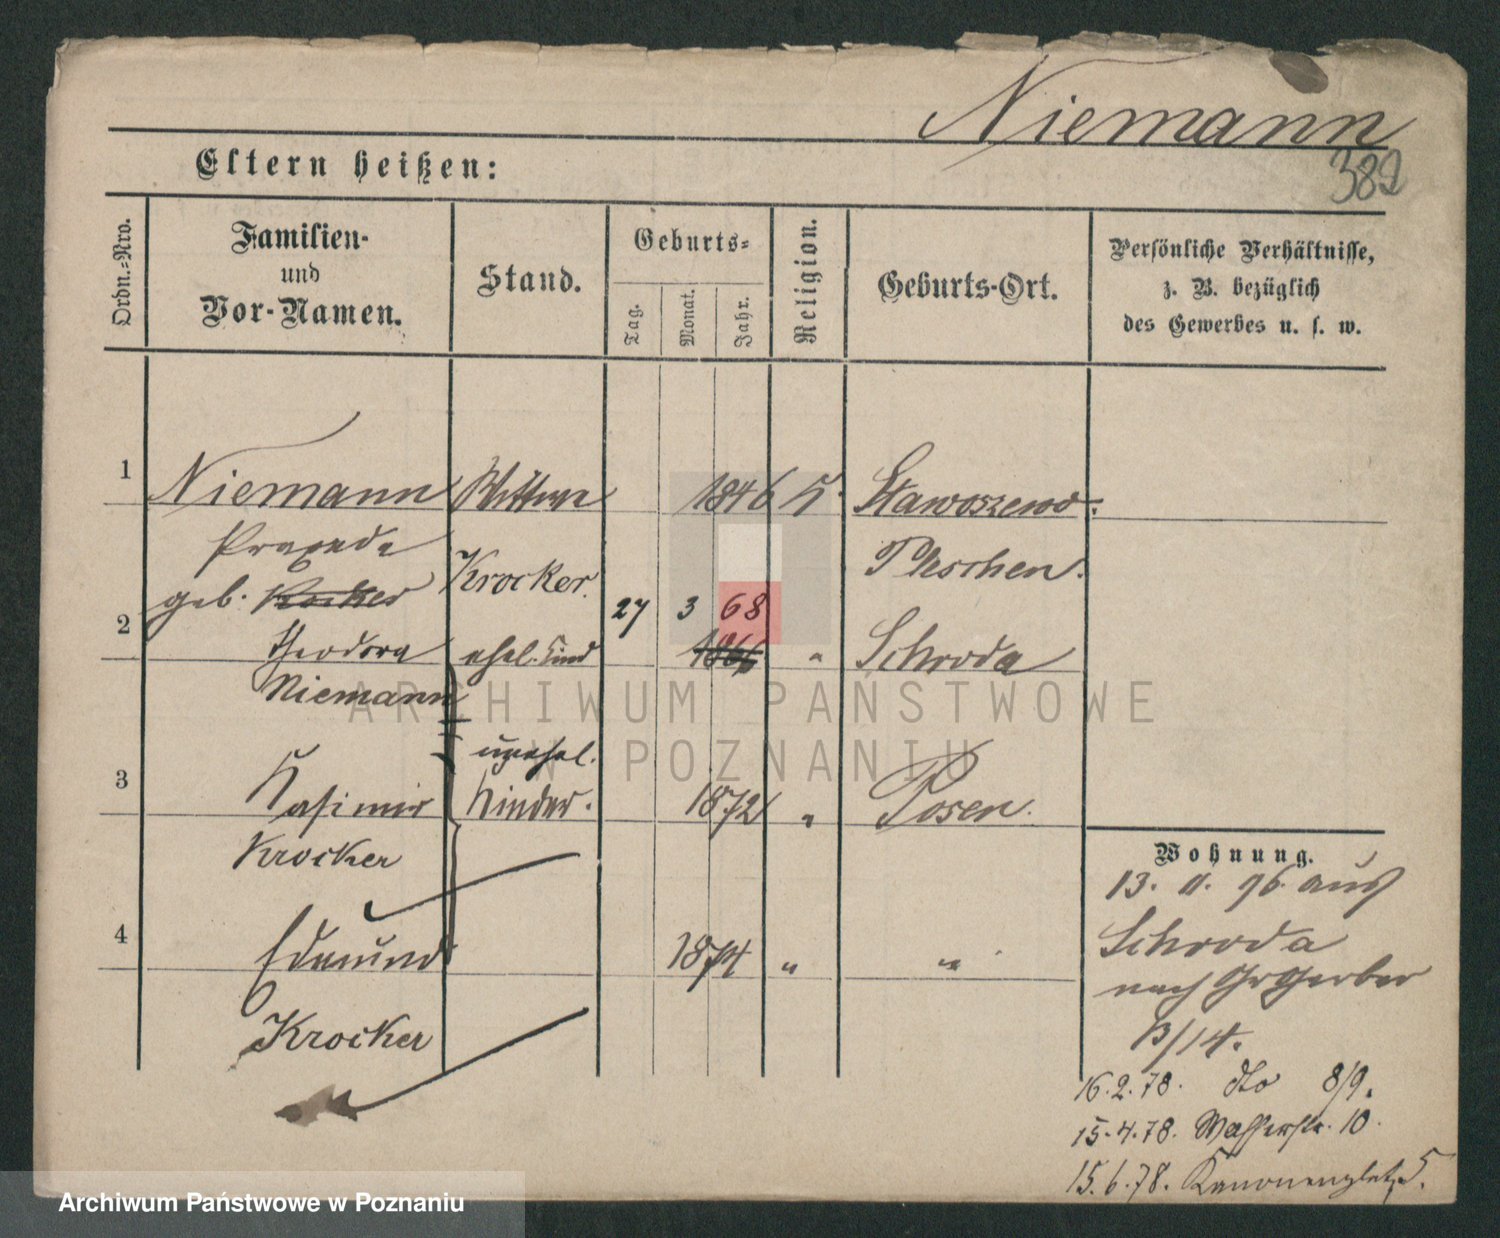 Niemann
382
Eltern heißen:
Ordn.=Nro.
Familien-
und
Vor-Namen.
Stand.
Geburts=
Tag.
Monat.
Jahr.
Religion.
Geburts-Ort.
Persönliche Verhältnisse,
z. B. bezüglich
des Gewerbes u. s. w.
1 Niemann Wittwe 1846 K. Stawoszewo
Praxeda
geb. Krocker Krocker. Pleschen.
27 3 68
2 Theodora ehel. Kind 1866 " Schroda
Niemann
unehel.
3 Kasimir Kinder. 1872 " Posen.
Krocker
4 Edmund 1874 " "
Krocker
Wohnung.
13. 11. 76 aus
Schroda
nach GrGerber
13/14.
16.2.78. dto 8/9.
15.4.78. Wasserstr. 10.
15.6.78. Kanonenplatz 5.
ARCHIWUM PAŃSTWOWE
W POZNANIU
Archiwum Państwowe w Poznaniu